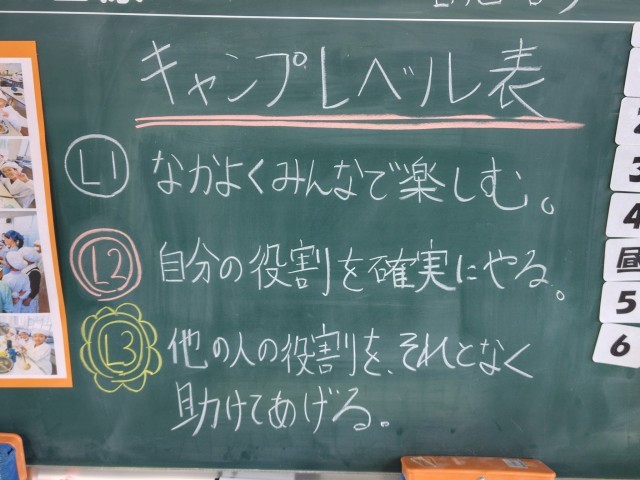 キャンプレベル表
L1 なかよくみんなで楽しむ。
L2 自分の役割を確実にやる。
L3 他の人の役割を、それとなく
助けてあげる。
2
3
4
昼
5
6